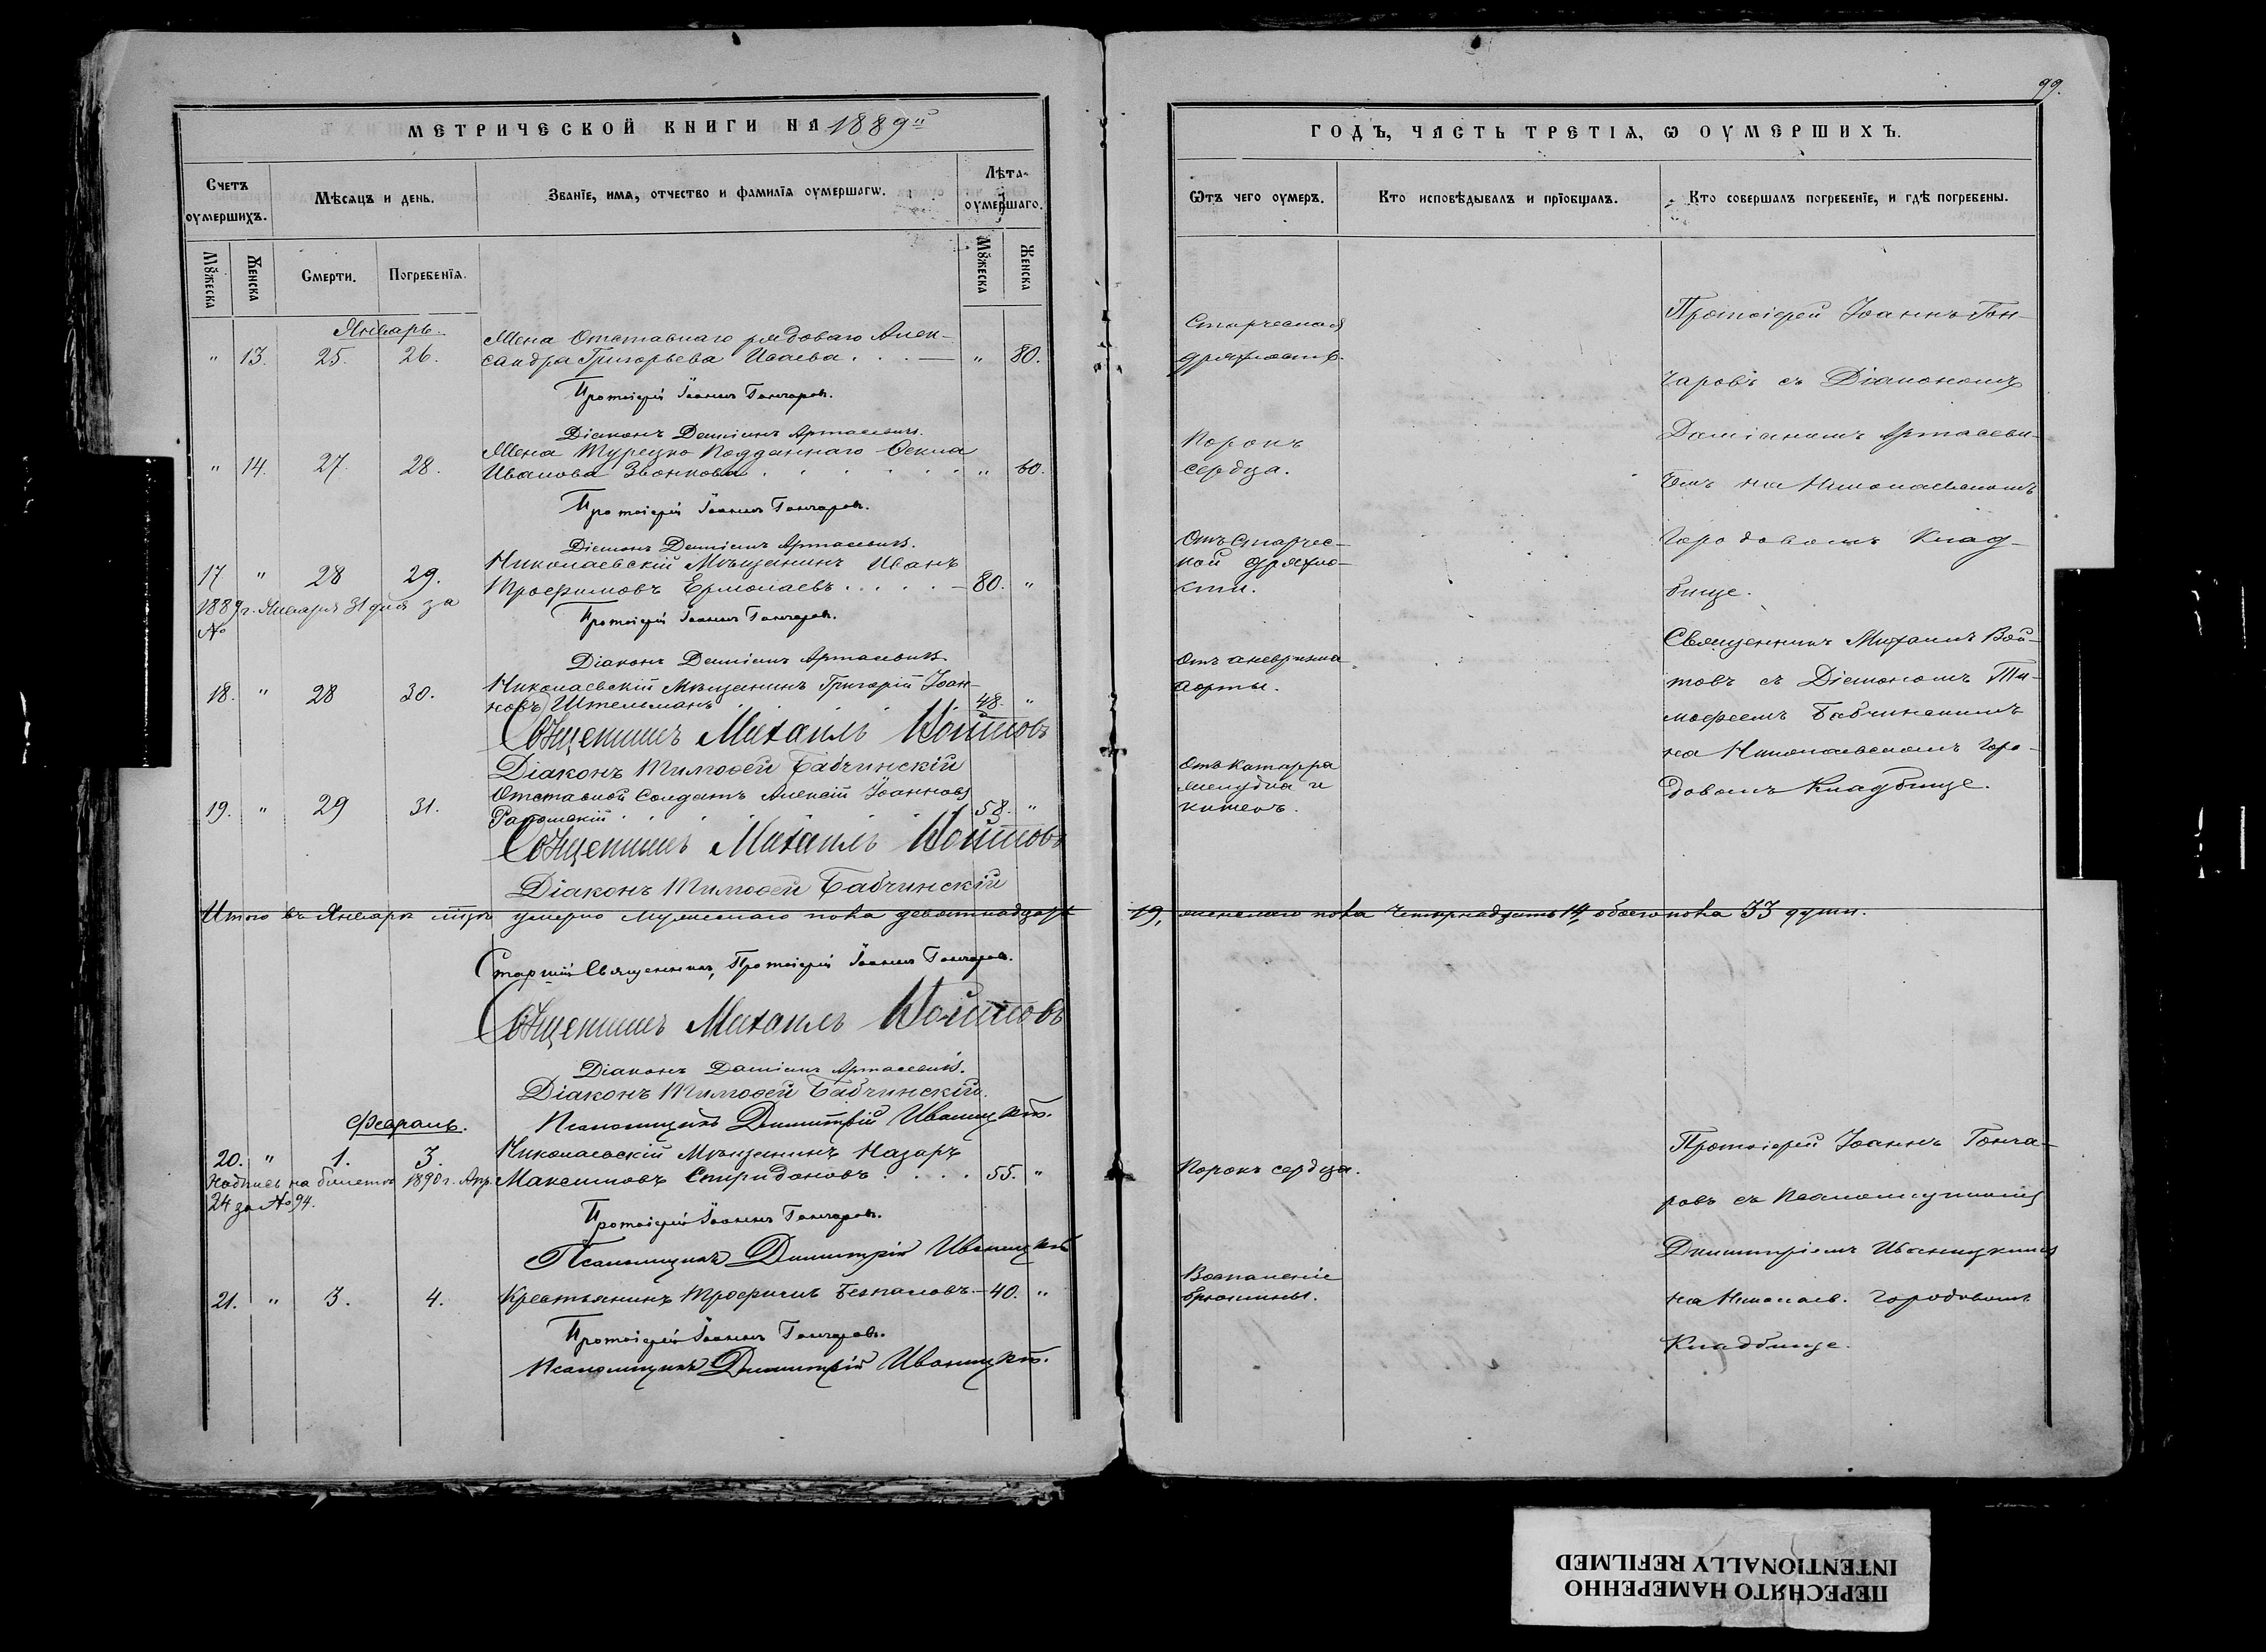 99.
МЕТРИЧЕСКОЙ КНИГИ НА 1889й
ГОДЪ, ЧАСТЬ ТРЕТІЯ, Ѡ ОУМЕРШИХЪ.
Счетъ оумершихъ.
Мѣсяцъ и день.
Званіе, имя, отчество и фамилія оумершагѡ.
Лѣта оумершаго.
Ѿтъ чего оумеръ.
Кто исповѣдывалъ и пріобщалъ.
Кто совершалъ погребеніе, и гдѣ погребены.
Мꙋжеска
Женска
Смерти.
Погребенія.
Мꙋжеска
Женска
Январь.
Жена Отставнаго рядоваго Алек-
" 13. 25. 26. сандра Григорьева Исаева . . . — " 80.
Протоіерей Іоаннъ Гончаровъ.
Діаконъ Даміанъ Артасевичъ.
Жена Турецко Подданнаго Ѳекла
" 14. 27. 28. Иванова Звонкова . . . . . . " 60.
Протоіерей Іоаннъ Гончаровъ.
Діаконъ Даміанъ Артасевичъ.
Николаевскій Мѣщанинъ Иванъ
17 " 28 29. Трофимовъ Ермолаевъ . . . . . — 80. "
1889 г. Января 31 дня за
№
Протоіерей Іоаннъ Гончаровъ.
Діаконъ Даміанъ Артасевичъ.
Николаевскій Мѣщанинъ Григорій Іоан-
18. " 28 30. новъ Штельманъ . . . 48. "
Священникъ Михаилъ Войтовъ
Діаконъ Тимоѳей Бабчинскій
Отставной Солдатъ Алексій Іоанновъ
19. " 29 31. . . . . 58. "
Священникъ Михаилъ Войтовъ
Діаконъ Тимоѳей Бабчинскій
Итого въ Январѣ мцѣ умерло мужескаго пола девятнадцать
19, женскаго пола четырнадцать 14 обоего пола 33 души.
Старшій Священникъ, Протоіерей Іоаннъ Гончаровъ.
Священникъ Михаилъ Войтовъ
Діаконъ Даміанъ Артасевичъ.
Діаконъ Тимоѳей Бабчинскій.
Псаломщикъ Димитрій Иваницкій.
Февраль.
Николаевскій Мѣщанинъ Назаръ
20. " 1. 3. Максимовъ Спиридоновъ . . . . 55. "
Надпись на билетѣ 1890 г. Апр.
24 за № 94.
Протоіерей Іоаннъ Гончаровъ.
Псаломщикъ Димитрій Иваницкій
21. " 3. 4. Крестьянинъ Трофимъ Безпаловъ. — 40. "
Протоіерей Іоаннъ Гончаровъ.
Псаломщикъ Димитрій Иваницкій.
Старческая
дряхлость.
Порокъ
сердца.
Отъ старчес-
кой дряхло-
сти.
Отъ аневризма
аорты.
Отъ катарра
желудка и
кишекъ.
Порокъ сердца.
Воспаленіе
брюшины.
Протоіерей Іоаннъ Гон-
чаровъ съ Діакономъ
Даміаномъ Артасеви-
чемъ на Николаевскомъ
Городовомъ Клад-
бище.
Священникъ Михаилъ Вой-
товъ съ Діакономъ Ти-
моѳеемъ Бабчинскимъ
на Николаевскомъ Горо-
довомъ Кладбище.
Протоіерей Іоаннъ Гонча-
ровъ съ Псаломщикомъ
Димитріемъ Иваницкимъ
на Николаев. Городовомъ
Кладбище.
ПЕРЕСНЯТО НАМЕРЕННО
INTENTIONALLY REFILMED